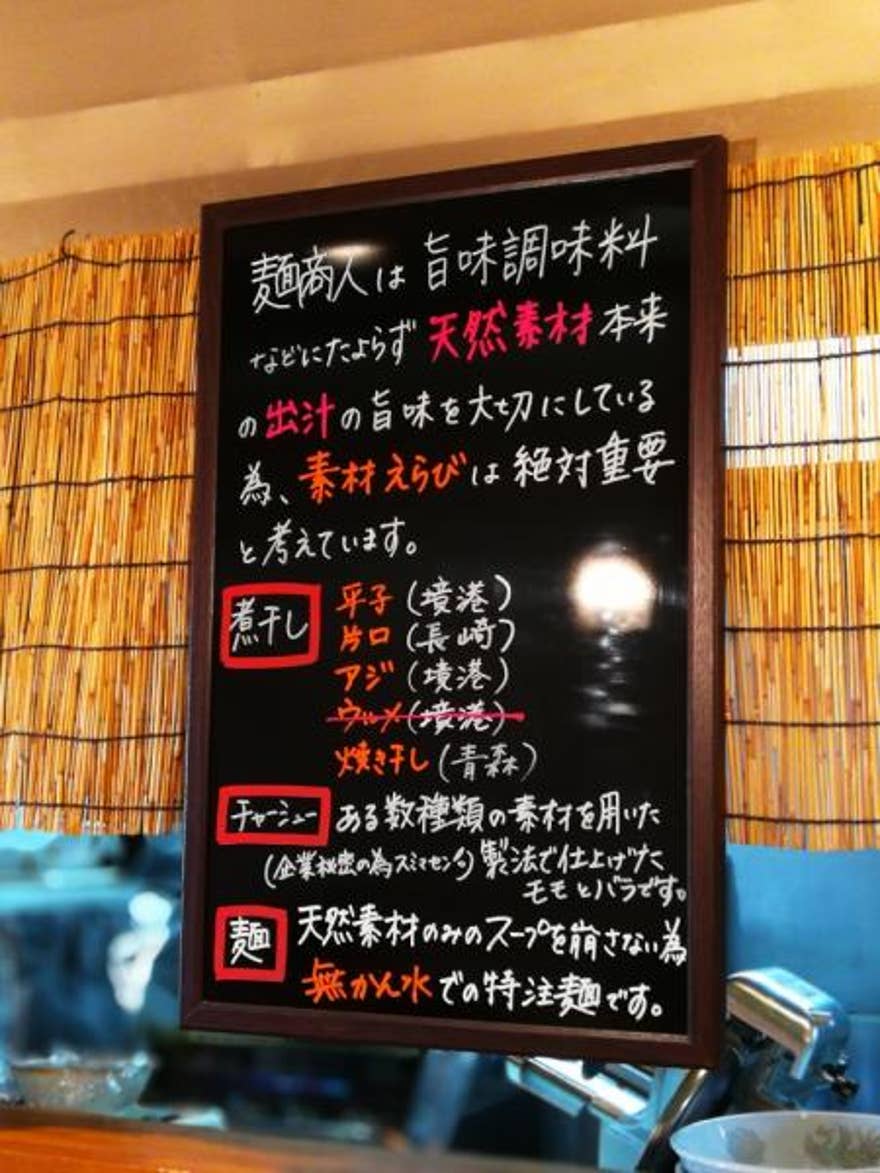 麺商人は旨味調味料
などにたよらず天然素材本来
の出汁の旨味を大切にしている
為、素材えらびは絶対重要
と考えています。
煮干し 平子(境港)
片口(長崎)
アジ(境港)
ウルメ(境港)
焼き干し(青森)
チャーシュー ある数種類の素材を用いた
(企業秘密の為スミマセン)製法で仕上げた
モモとバラです。
麺 天然素材のみのスープを崩さない為
無かん水での特注麺です。